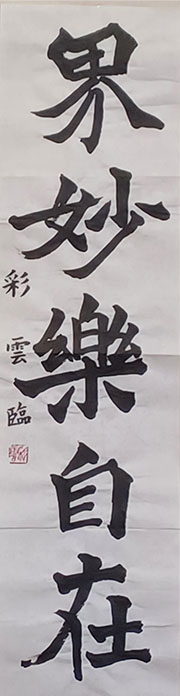 界妙樂自在
彩雲臨